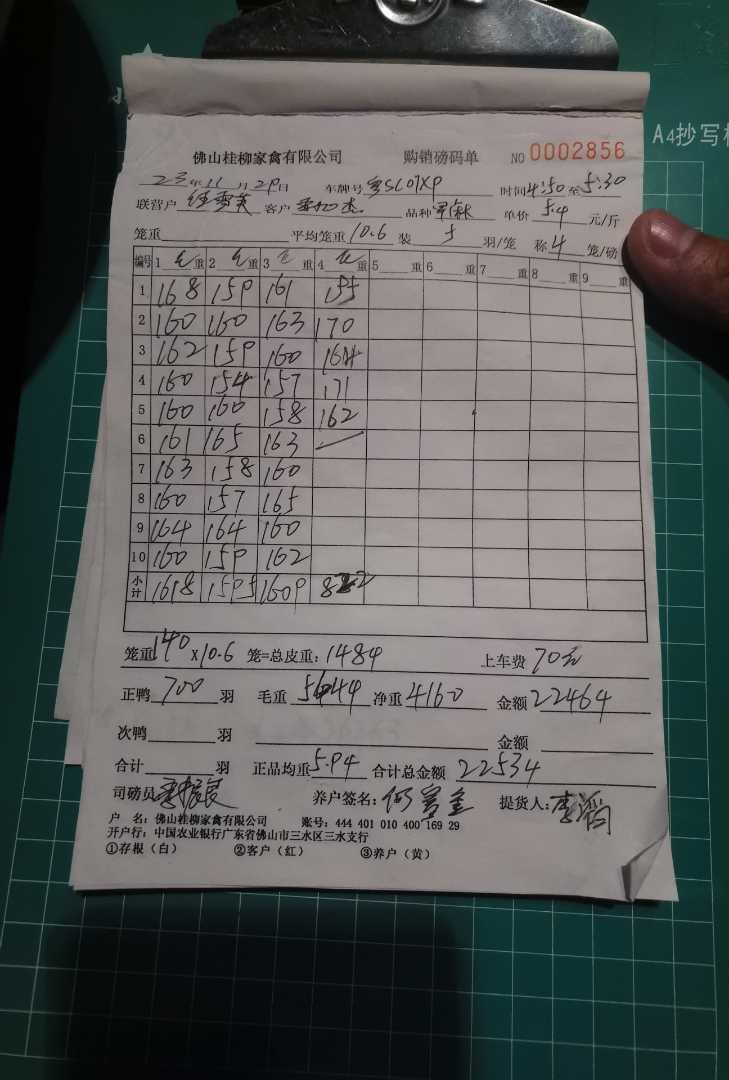 A4抄写
佛山桂柳家禽有限公司 购销磅码单 NO 0002856
23年11月29日 车牌号 时间4:50至5:30
联营户 客户 品种 单价 5.4 元/斤
笼重 平均笼重 10.6 装 5 羽/笼 称 4 笼/磅
编号 1 毛重 2 毛重 3 毛重 4 毛重 5 重 6 重 7 重 8 重 9 重
1 168 159 161 155
2 160 160 163 170
3 162 159 160 164
4 160 154 157 171
5 160 160 158 162
6 161 165 163
7 163 158 160
8 160 157 165
9 164 164 160
10 160 159 162
小计 1618 1595 1609 822
笼重 140 X10.6 笼=总皮重: 1484 上车费 70元
正鸭 700 羽 毛重 5644 净重 4160 金额 22464
次鸭 羽 金额
合计 羽 正品均重 5.94 合计总金额 22534
司磅员 养户签名: 提货人:
户 名: 佛山桂柳家禽有限公司 账号: 444 401 010 400 169 29
开户行: 中国农业银行广东省佛山市三水区三水支行
①存根（白） ②客户（红） ③养户（黄）